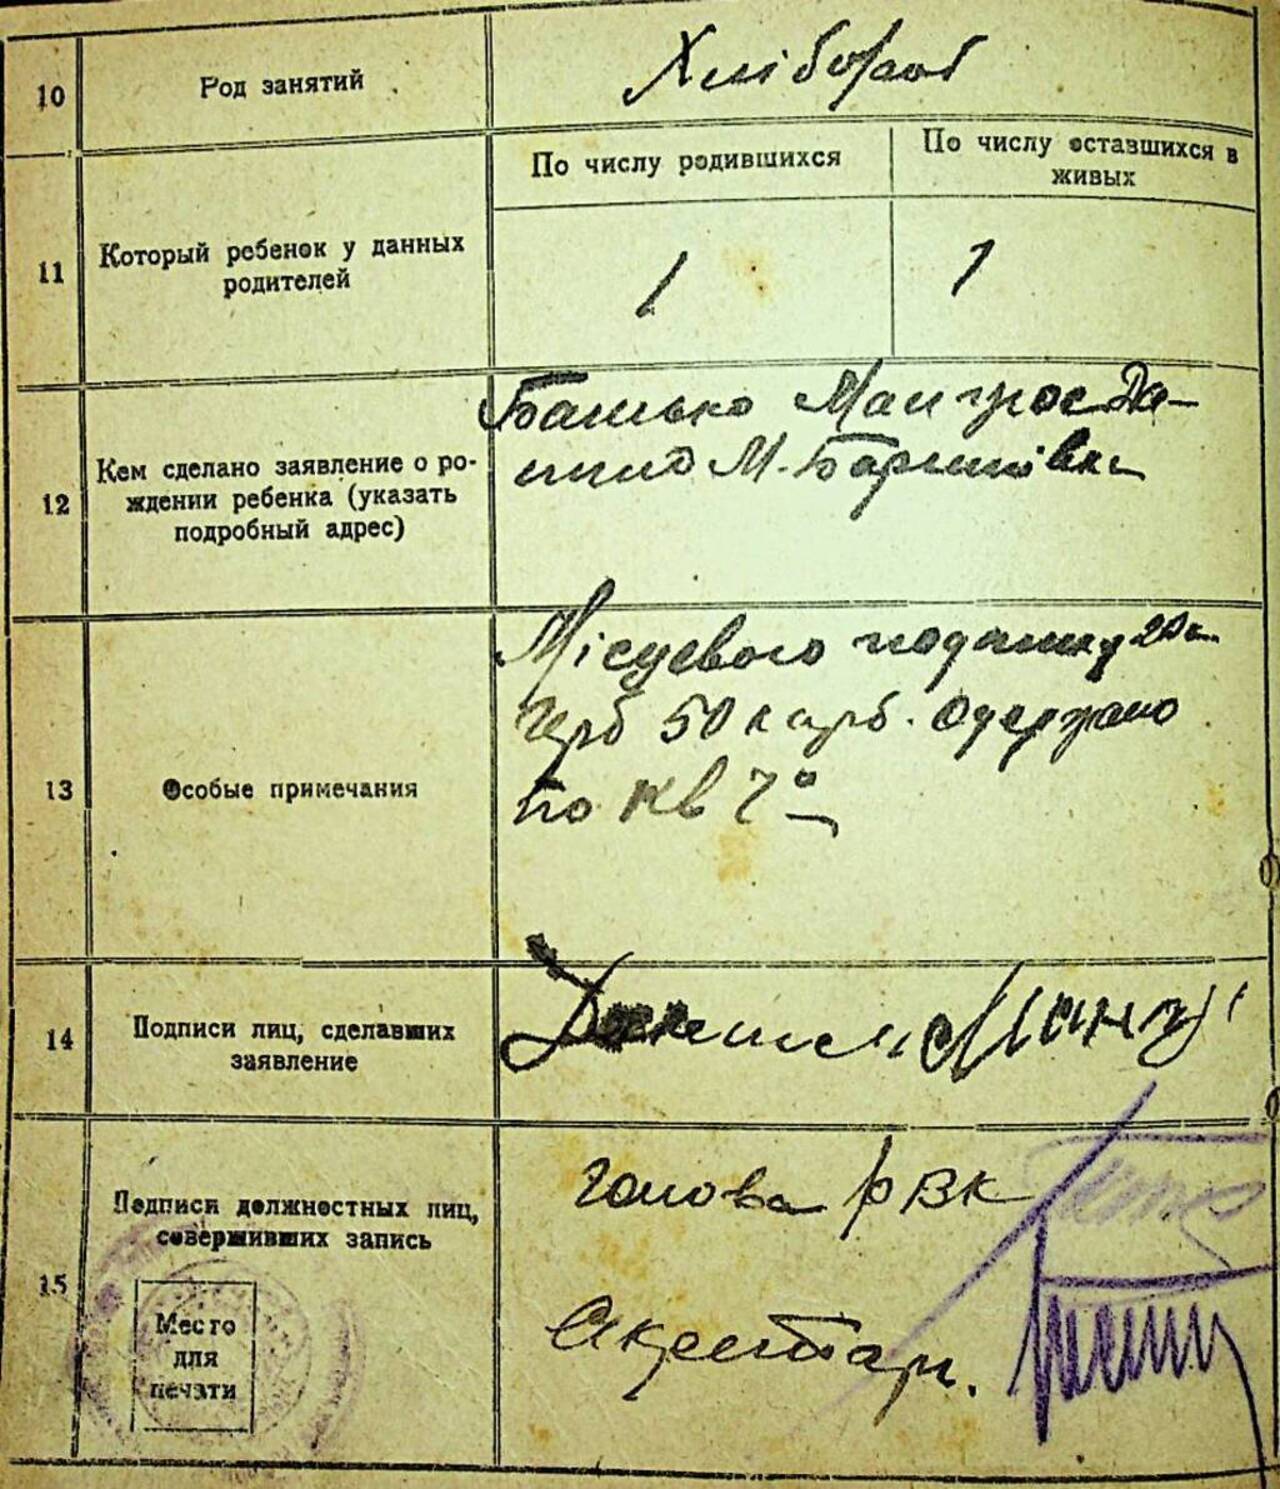 10
Род занятий
Хлібороб
11
Который ребенок у данных
родителей
По числу родившихся
По числу оставшихся в
живых
1
1
12
Кем сделано заявление о ро-
ждении ребенка (указать
подробный адрес)
Батько
М. Баришівка
13
Особые примечания
Місцевого податку
Герб 50 карб. Одержано
по кв
14
Подписи лиц, сделавших
заявление
15
Подписи должностных лиц,
совершивших запись
Место
для
печати
Голова РВК
Секретар.